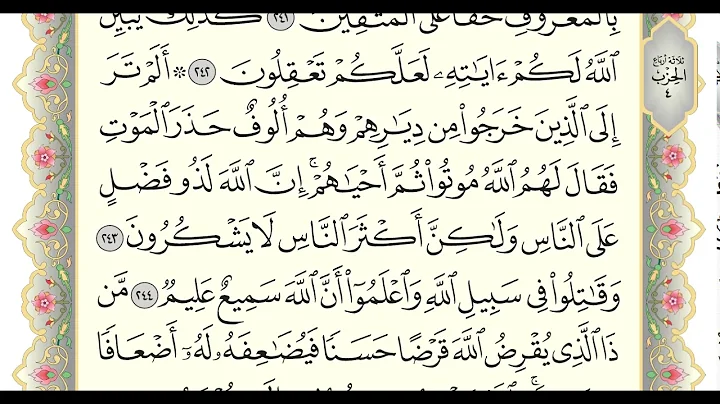 بِالْمَعْرُوفِ حَقًّا عَلَى الْمُتَّقِينَ ٢٤١ كَذَٰلِكَ يُبَيِّنُ
اللَّهُ لَكُمْ ءَايَٰتِهِۦ لَعَلَّكُمْ تَعْقِلُونَ ٢٤٢ ۞ أَلَمْ تَرَ
إِلَى الَّذِينَ خَرَجُوا۟ مِن دِيَٰرِهِمْ وَهُمْ أُلُوفٌ حَذَرَ الْمَوْتِ
فَقَالَ لَهُمُ اللَّهُ مُوتُوا۟ ثُمَّ أَحْيَٰهُمْ ۚ إِنَّ اللَّهَ لَذُو فَضْلٍ
عَلَى النَّاسِ وَلَٰكِنَّ أَكْثَرَ النَّاسِ لَا يَشْكُرُونَ ٢٤٣
وَقَٰتِلُوا۟ فِى سَبِيلِ اللَّهِ وَاعْلَمُوٓا۟ أَنَّ اللَّهَ سَمِيعٌ عَلِيمٌ ٢٤٤ مَّن
ذَا الَّذِى يُقْرِضُ اللَّهَ قَرْضًا حَسَنًا فَيُضَٰعِفَهُۥ لَهُۥٓ أَضْعَافًا
ثلاثة أرباع
الحزب
٤